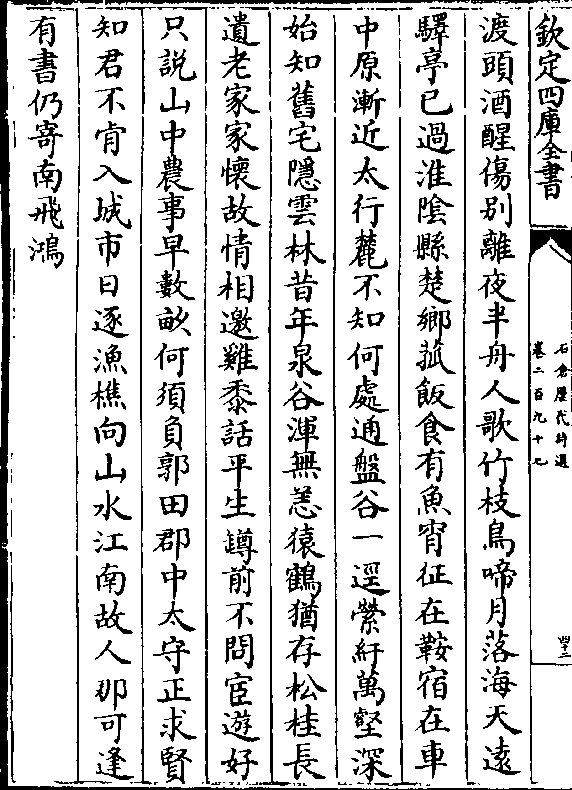 欽定四庫全書
石倉歷代詩選
卷二百九十七
四十二
渡頭酒醒傷别離夜半舟人歌竹枝鳥啼月落海天遠
驛亭已過淮隂縣楚鄉菰飯食有魚宵征在鞍宿在車
中原漸近太行麓不知何處通盤谷一逕縈紆萬壑深
始知舊宅隱雲林昔年泉谷渾無恙猿鶴猶存松桂長
遺老家家懷故情相邀雞黍話平生罇前不問宦遊好
只説山中農事早數畝何須負郭田郡中太守正求賢
知君不肯入城市日逐漁樵向山水江南故人那可逢
有書仍寄南飛鴻